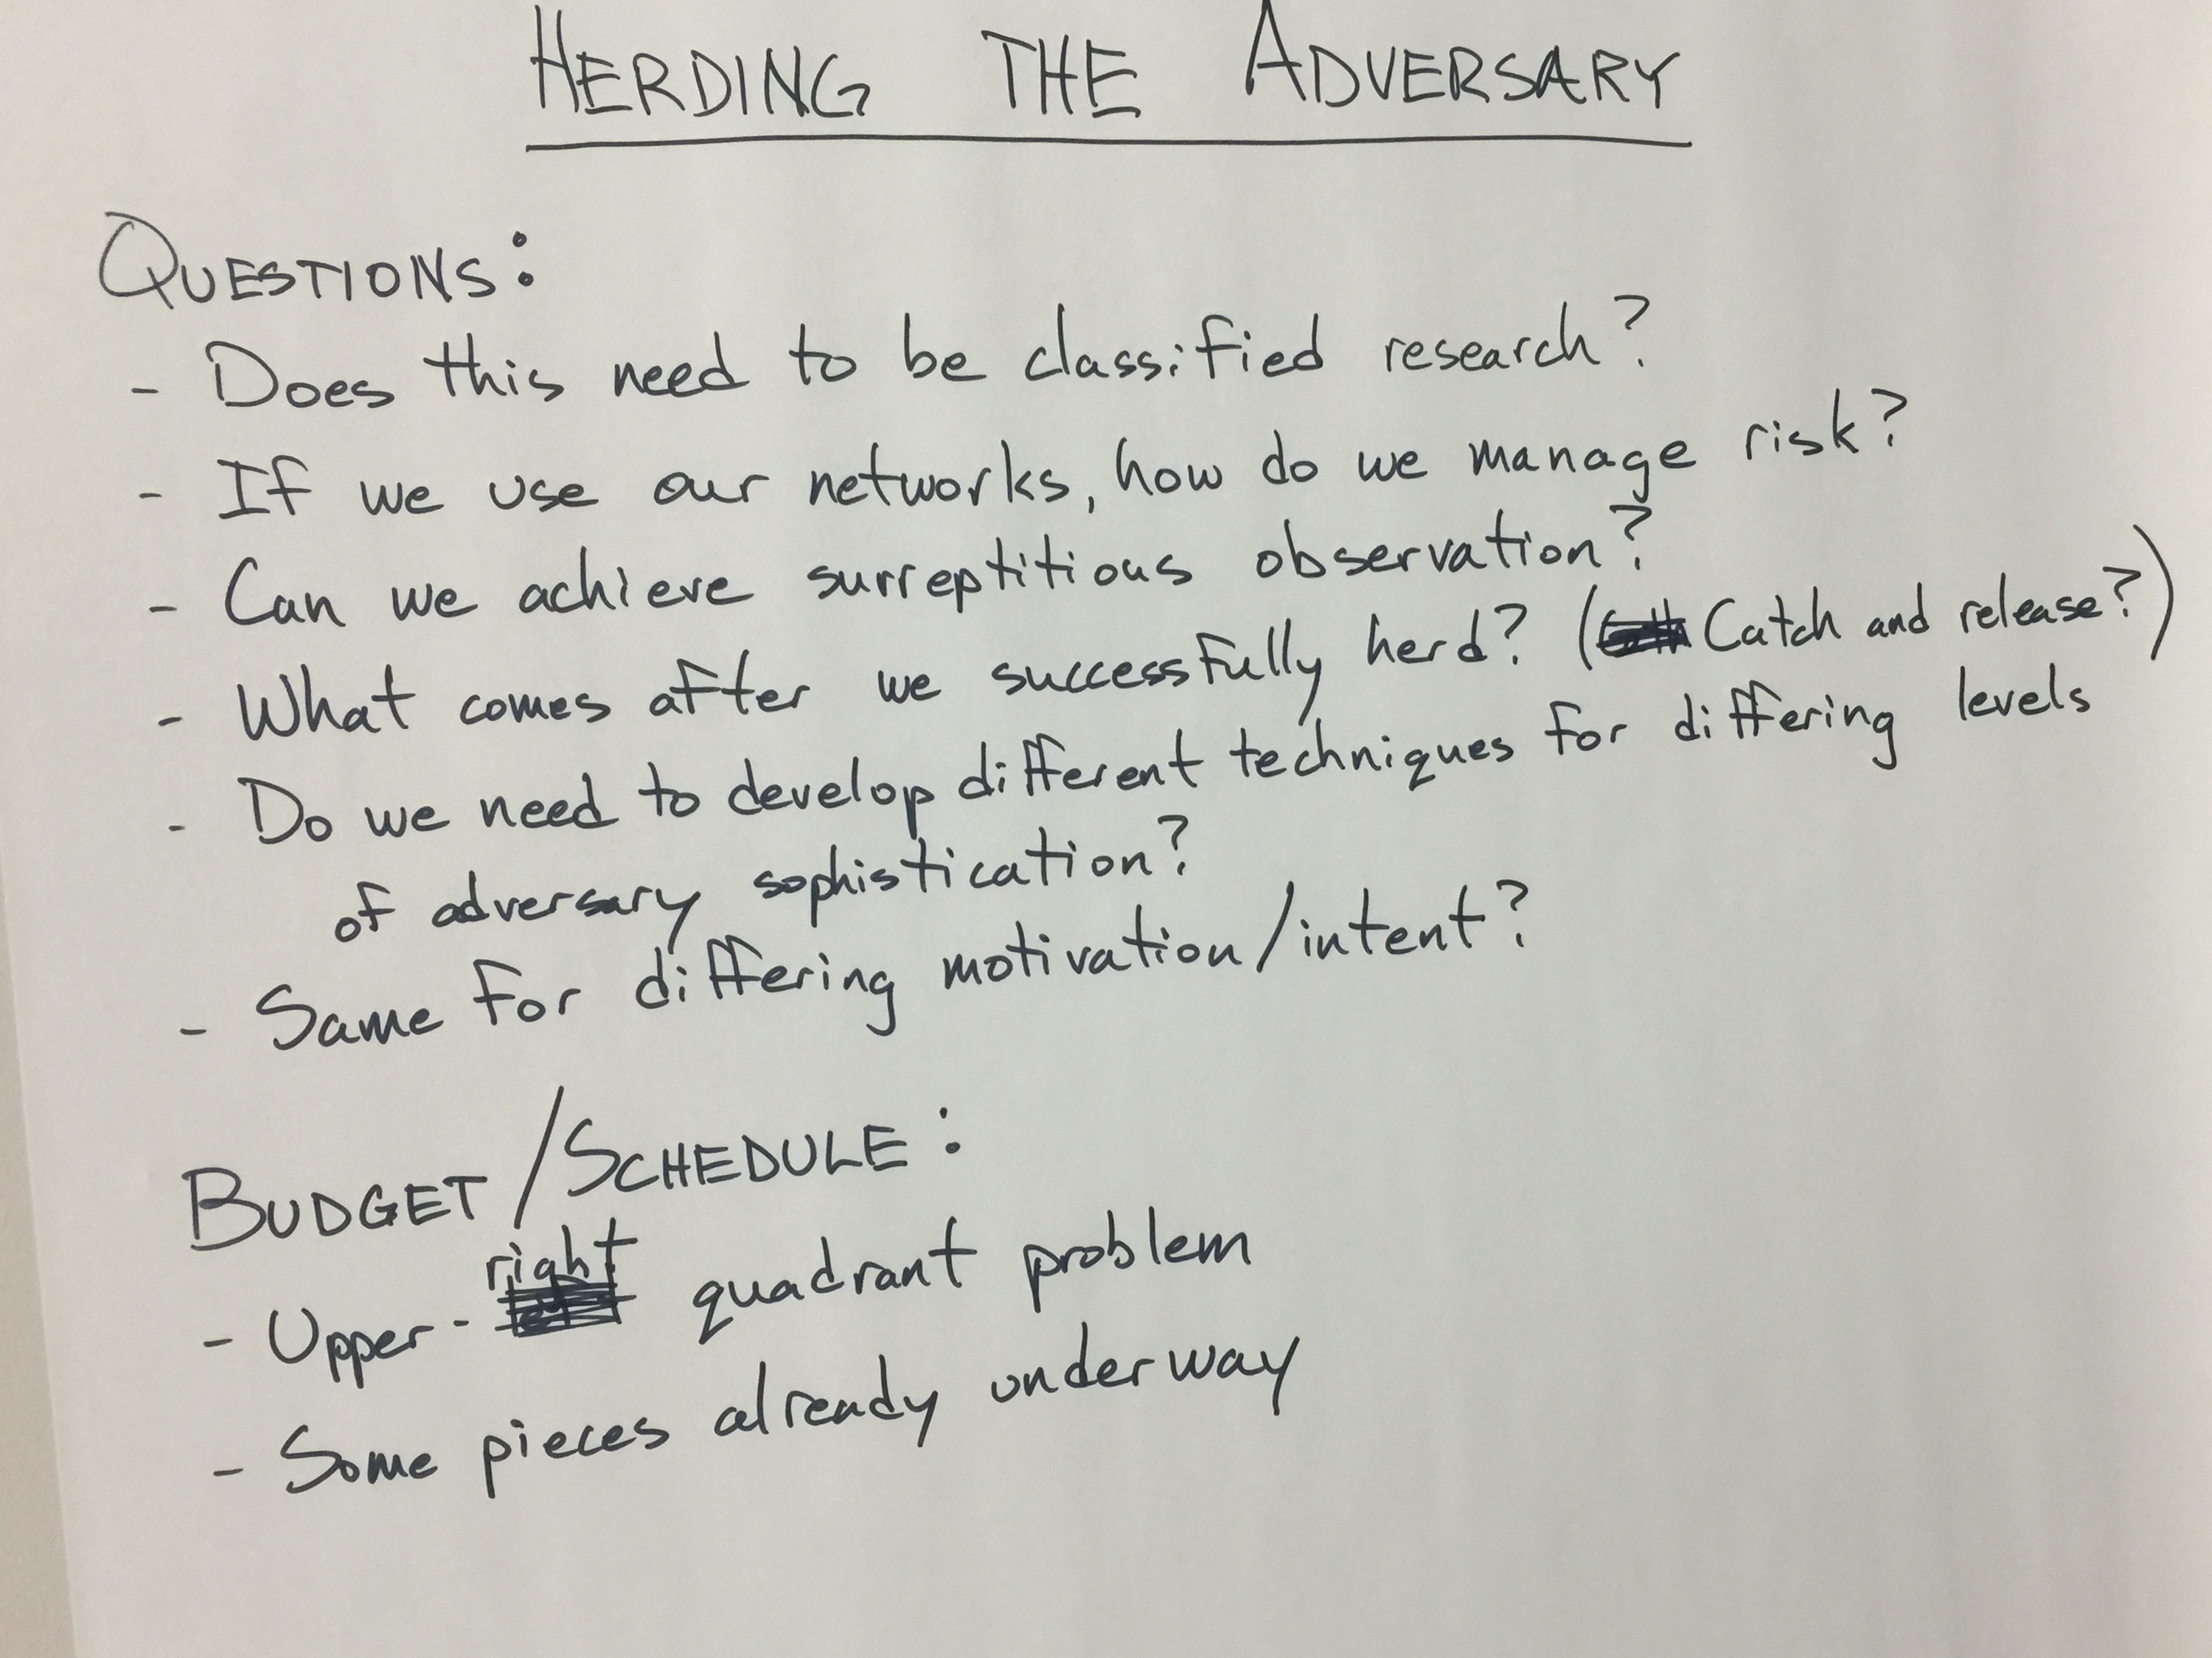 HERDING THE ADVERSARY
QUESTIONS:
- Does this need to be classified research?
- If we use our networks, how do we manage risk?
- Can we achieve surreptitious observation?
- What comes after we successfully herd? (Catch and release?)
- Do we need to develop different techniques for differing levels
of adversary sophistication?
- Same for differing motivation/intent?
BUDGET/SCHEDULE:
- Upper-right quadrant problem
- Some pieces already underway